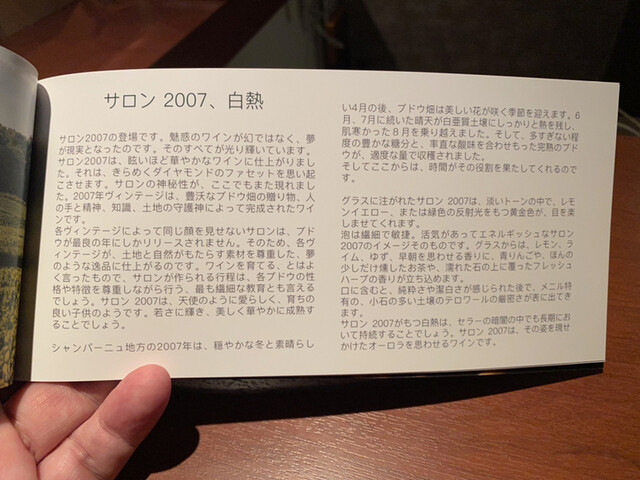 サロン 2007、白熱
サロン2007の登場です。魅惑のワインが幻ではなく、夢
が現実となったのです。そのすべてが光り輝いています。
サロン2007は、眩いほど華やかなワインに仕上がりまし
た。それは、きらめくダイヤモンドのファセットを思い起
こさせます。サロンの神秘性が、ここでもまた現れまし
た。2007年ヴィンテージは、豊沃なブドウ畑の贈り物、人
の手と精神、知識、土地の守護神によって完成されたワイ
ンです。
各ヴィンテージによって同じ顔を見せないサロンは、ブド
ウが最良の年にしかリリースされません。そのため、各ヴ
ィンテージが、土地と自然がもたらす素材を尊重した、夢
のような逸品に仕上がるのです。ワインを育てる、とはよ
く言ったもので、サロンが作られる行程は、各ブドウの性
格や特徴を尊重しながら行う、最も繊細な教育とも言える
でしょう。サロン 2007は、天使のように愛らしく、育ちの
良い子供のようです。若さに輝き、美しく華やかに成熟す
ることでしょう。
シャンパーニュ地方の2007年は、穏やかな冬と素晴らし
い4月の後、ブドウ畑は美しい花が咲く季節を迎えます。6
月、7月に続いた晴天が白亜質土壌にしっかりと熱を残し、
肌寒かった８月を乗り越えました。そして、多すぎない程
度の豊かな糖分と、率直な酸味を合わせもった完熟のブド
ウが、適度な量で収穫されました。
そしてここからは、時間がその役割を果たしてくれるので
す。
グラスに注がれたサロン 2007は、淡いトーンの中で、レモ
ンイエロー、または緑色の反射光をもつ黄金色が、目を楽
しませてくれます。
泡は繊細で敏捷。活気があってエネルギッシュなサロン
2007のイメージそのものです。グラスからは、レモン、ラ
イム、ゆず、早朝を思わせる香りに、青りんごや、ほんの
少しだけ燻したお茶や、濡れた石の上に覆ったフレッシュ
ハーブの香りが立ち込めます。
口に含むと、純粋さや潔白さが感じられた後で、メニル特
有の、小石の多い土壌のテロワールの厳密さが表に出てき
ます。
サロン 2007がもつ白熱は、セラーの暗闇の中でも長期にお
いて持続することでしょう。サロン 2007は、その姿を現せ
かけたオーロラを思わせるワインです。